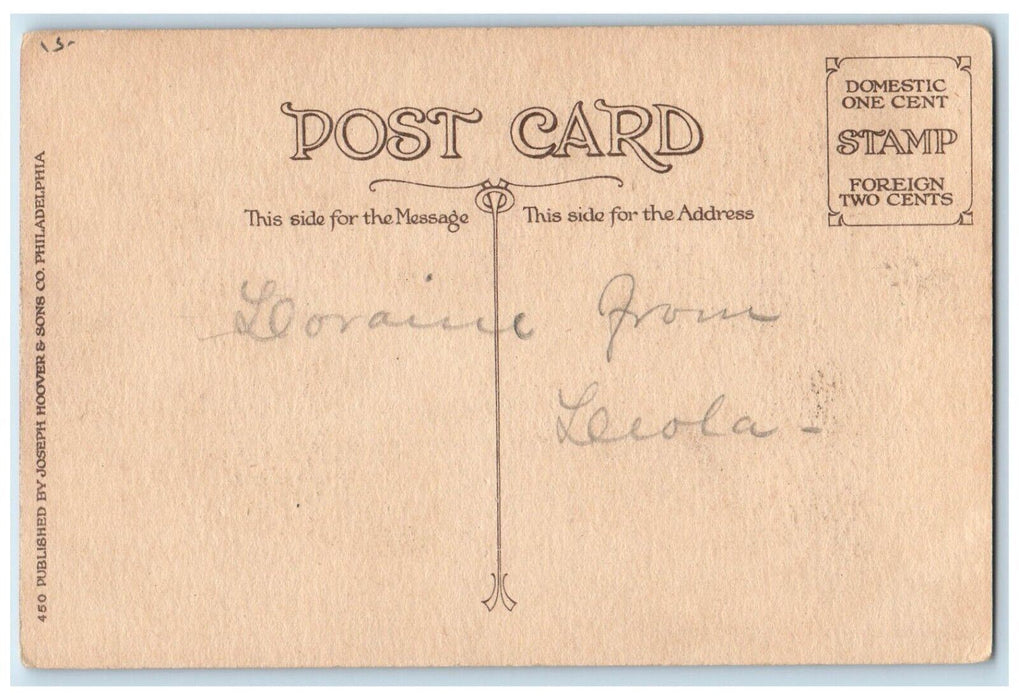 15-
POST CARD
DOMESTIC
ONE CENT
STAMP
FOREIGN
TWO CENTS
This side for the Message
This side for the Address
Loraine from
Leola -
450 PUBLISHED BY JOSEPH HOOVER & SONS CO. PHILADELPHIA